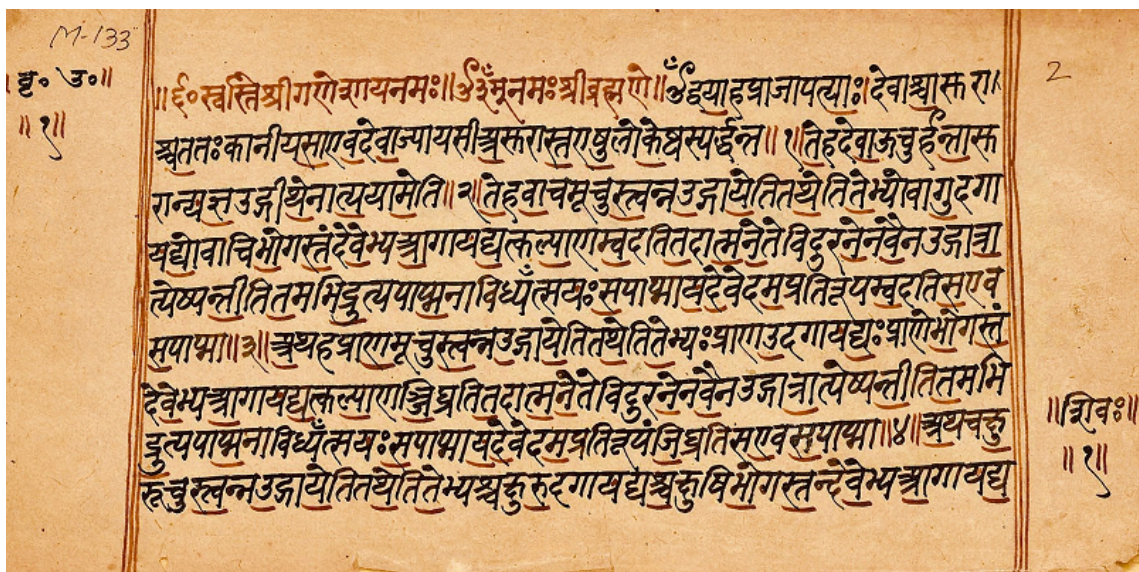 M-133
बृ॰ उ॰॥
॥१॥
2
॥६०स्वस्तिश्रीगणेशायनमः॥ॐनमःश्रीब्रह्मणे॥ॐद्वयाहप्राजापत्याः।देवाश्चासुरा।
श्चततःकानीयसाएवदेवाज्यायसीअसुरास्तएषुलोकेष्वस्पर्द्धन्त॥१॥तेहदेवाऊचुर्हन्तासु
रान्यज्ञउद्गीथेनात्ययामेति॥२॥तेहवाचमूचुस्त्वन्नउद्गायेतितथेतितेभ्योवागुदगा
यद्योवाचिभोगस्तंदेवेभ्यआगायद्यत्कल्याणम्वदतितदात्मनेतेविदुरनेनवैनउद्गात्रा
त्येष्यन्तीतितमभिद्रुत्यपाप्मनाविध्यँत्सयःसपाप्मायदेवेदमप्रतिरूपम्वदतिसएव
सपाप्मा॥३॥अथहप्राणमूचुस्त्वन्नउद्गायेतितथेतितेभ्यःप्राणउदगायद्यःप्राणेभोगस्तं
देवेभ्यआगायद्यत्कल्याणञ्जिघ्रतितदात्मनेतेविदुरनेनवैनउद्गात्रात्येष्यन्तीतितमभि
द्रुत्यपाप्मनाविध्यँत्सयःसपाप्मायदेवेदमप्रतिरूपंजिघ्रतिसएवसपाप्मा॥४॥अथचक्षु
रूचुस्त्वन्नउद्गायेतितथेतितेभ्यश्चक्षुरुदगायद्यश्चक्षुषिभोगस्तन्देवेभ्यआगायद्य
॥शिवः॥
॥१॥